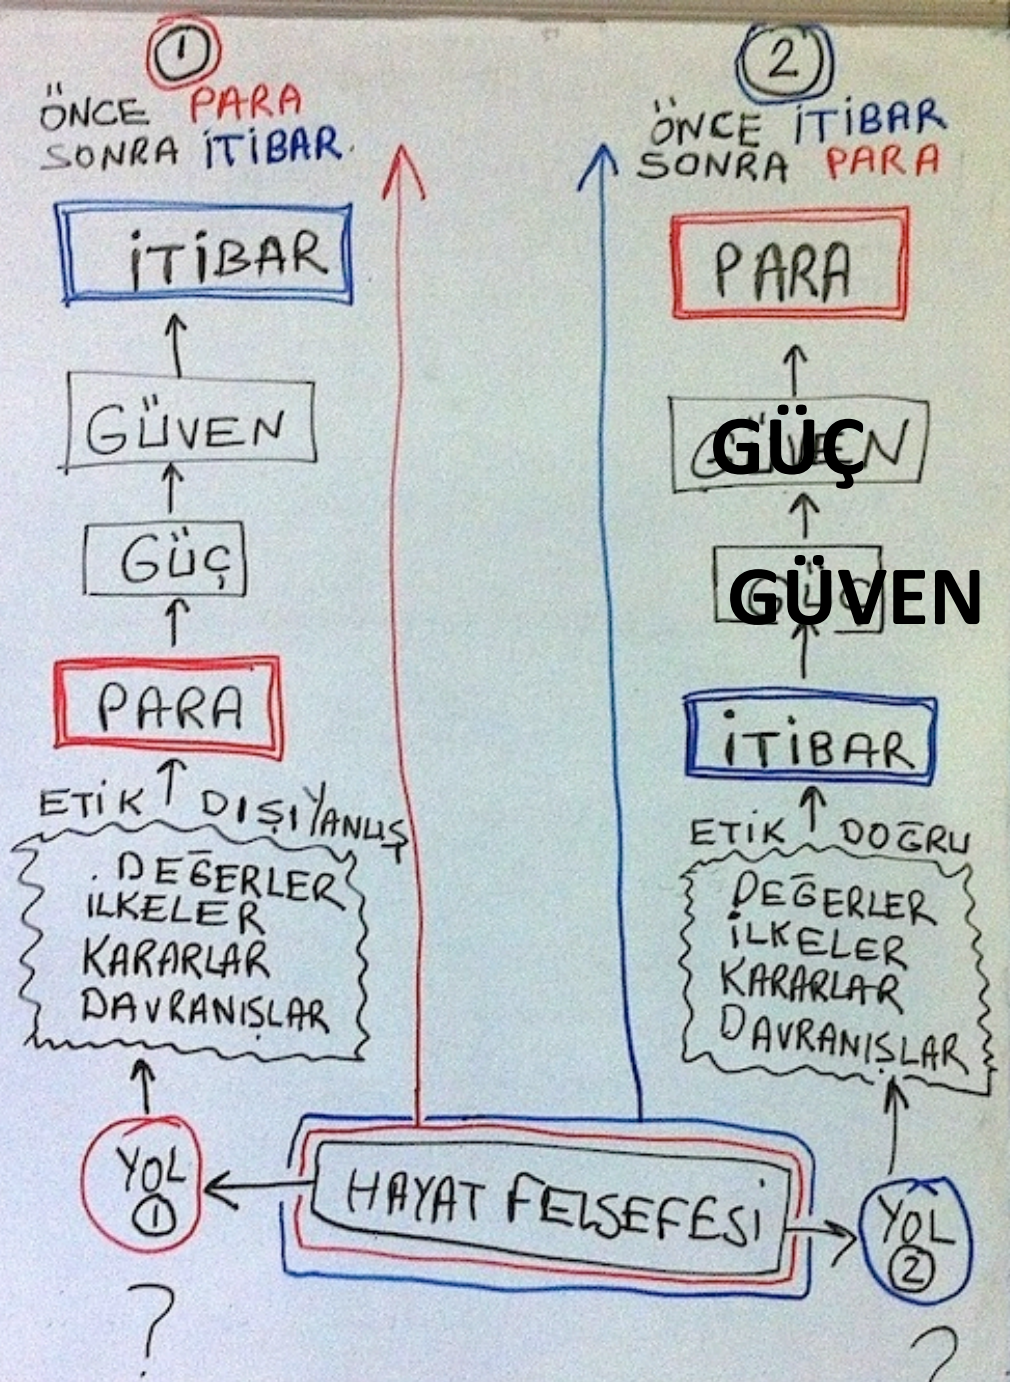 1
ÖNCE PARA
SONRA İTİBAR.
İTİBAR
GÜVEN
GÜÇ
PARA
ETİK DIŞI YANLIŞ
. DEĞERLER
İLKELER
KARARLAR
DAVRANIŞLAR
YOL
1
?
2
ÖNCE İTİBAR
SONRA PARA
PARA
GÜVEN
GÜÇ
GÜÇ
GÜVEN
İTİBAR
ETİK DOĞRU
DEĞERLER
İLKELER
KARARLAR
DAVRANIŞLAR
YOL
2
?
HAYAT FELSEFESİ